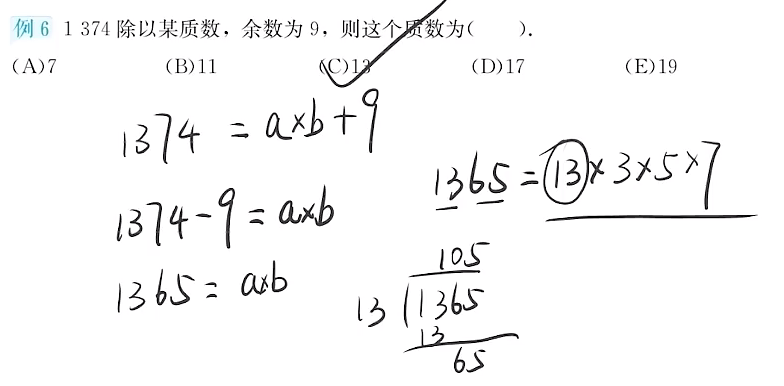 例 6 1 374 除以某质数，余数为 9，则这个质数为（ ）．
(A)7 (B)11 (C)13 (D)17 (E)19
1374 = a×b+9
1374-9 = a×b
1365 = a×b
1365 = 13×3×5×7
105
13 1365
13
65